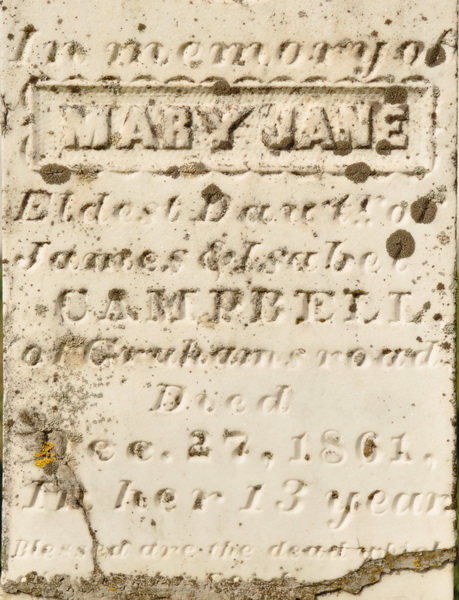 In memory of
MARY JANE
Eldest Daut'r. of
James & Isabel
CAMPBELL
of Grahams road
Died
Dec. 27, 1861,
In her 13 year
Blessed are the dead which